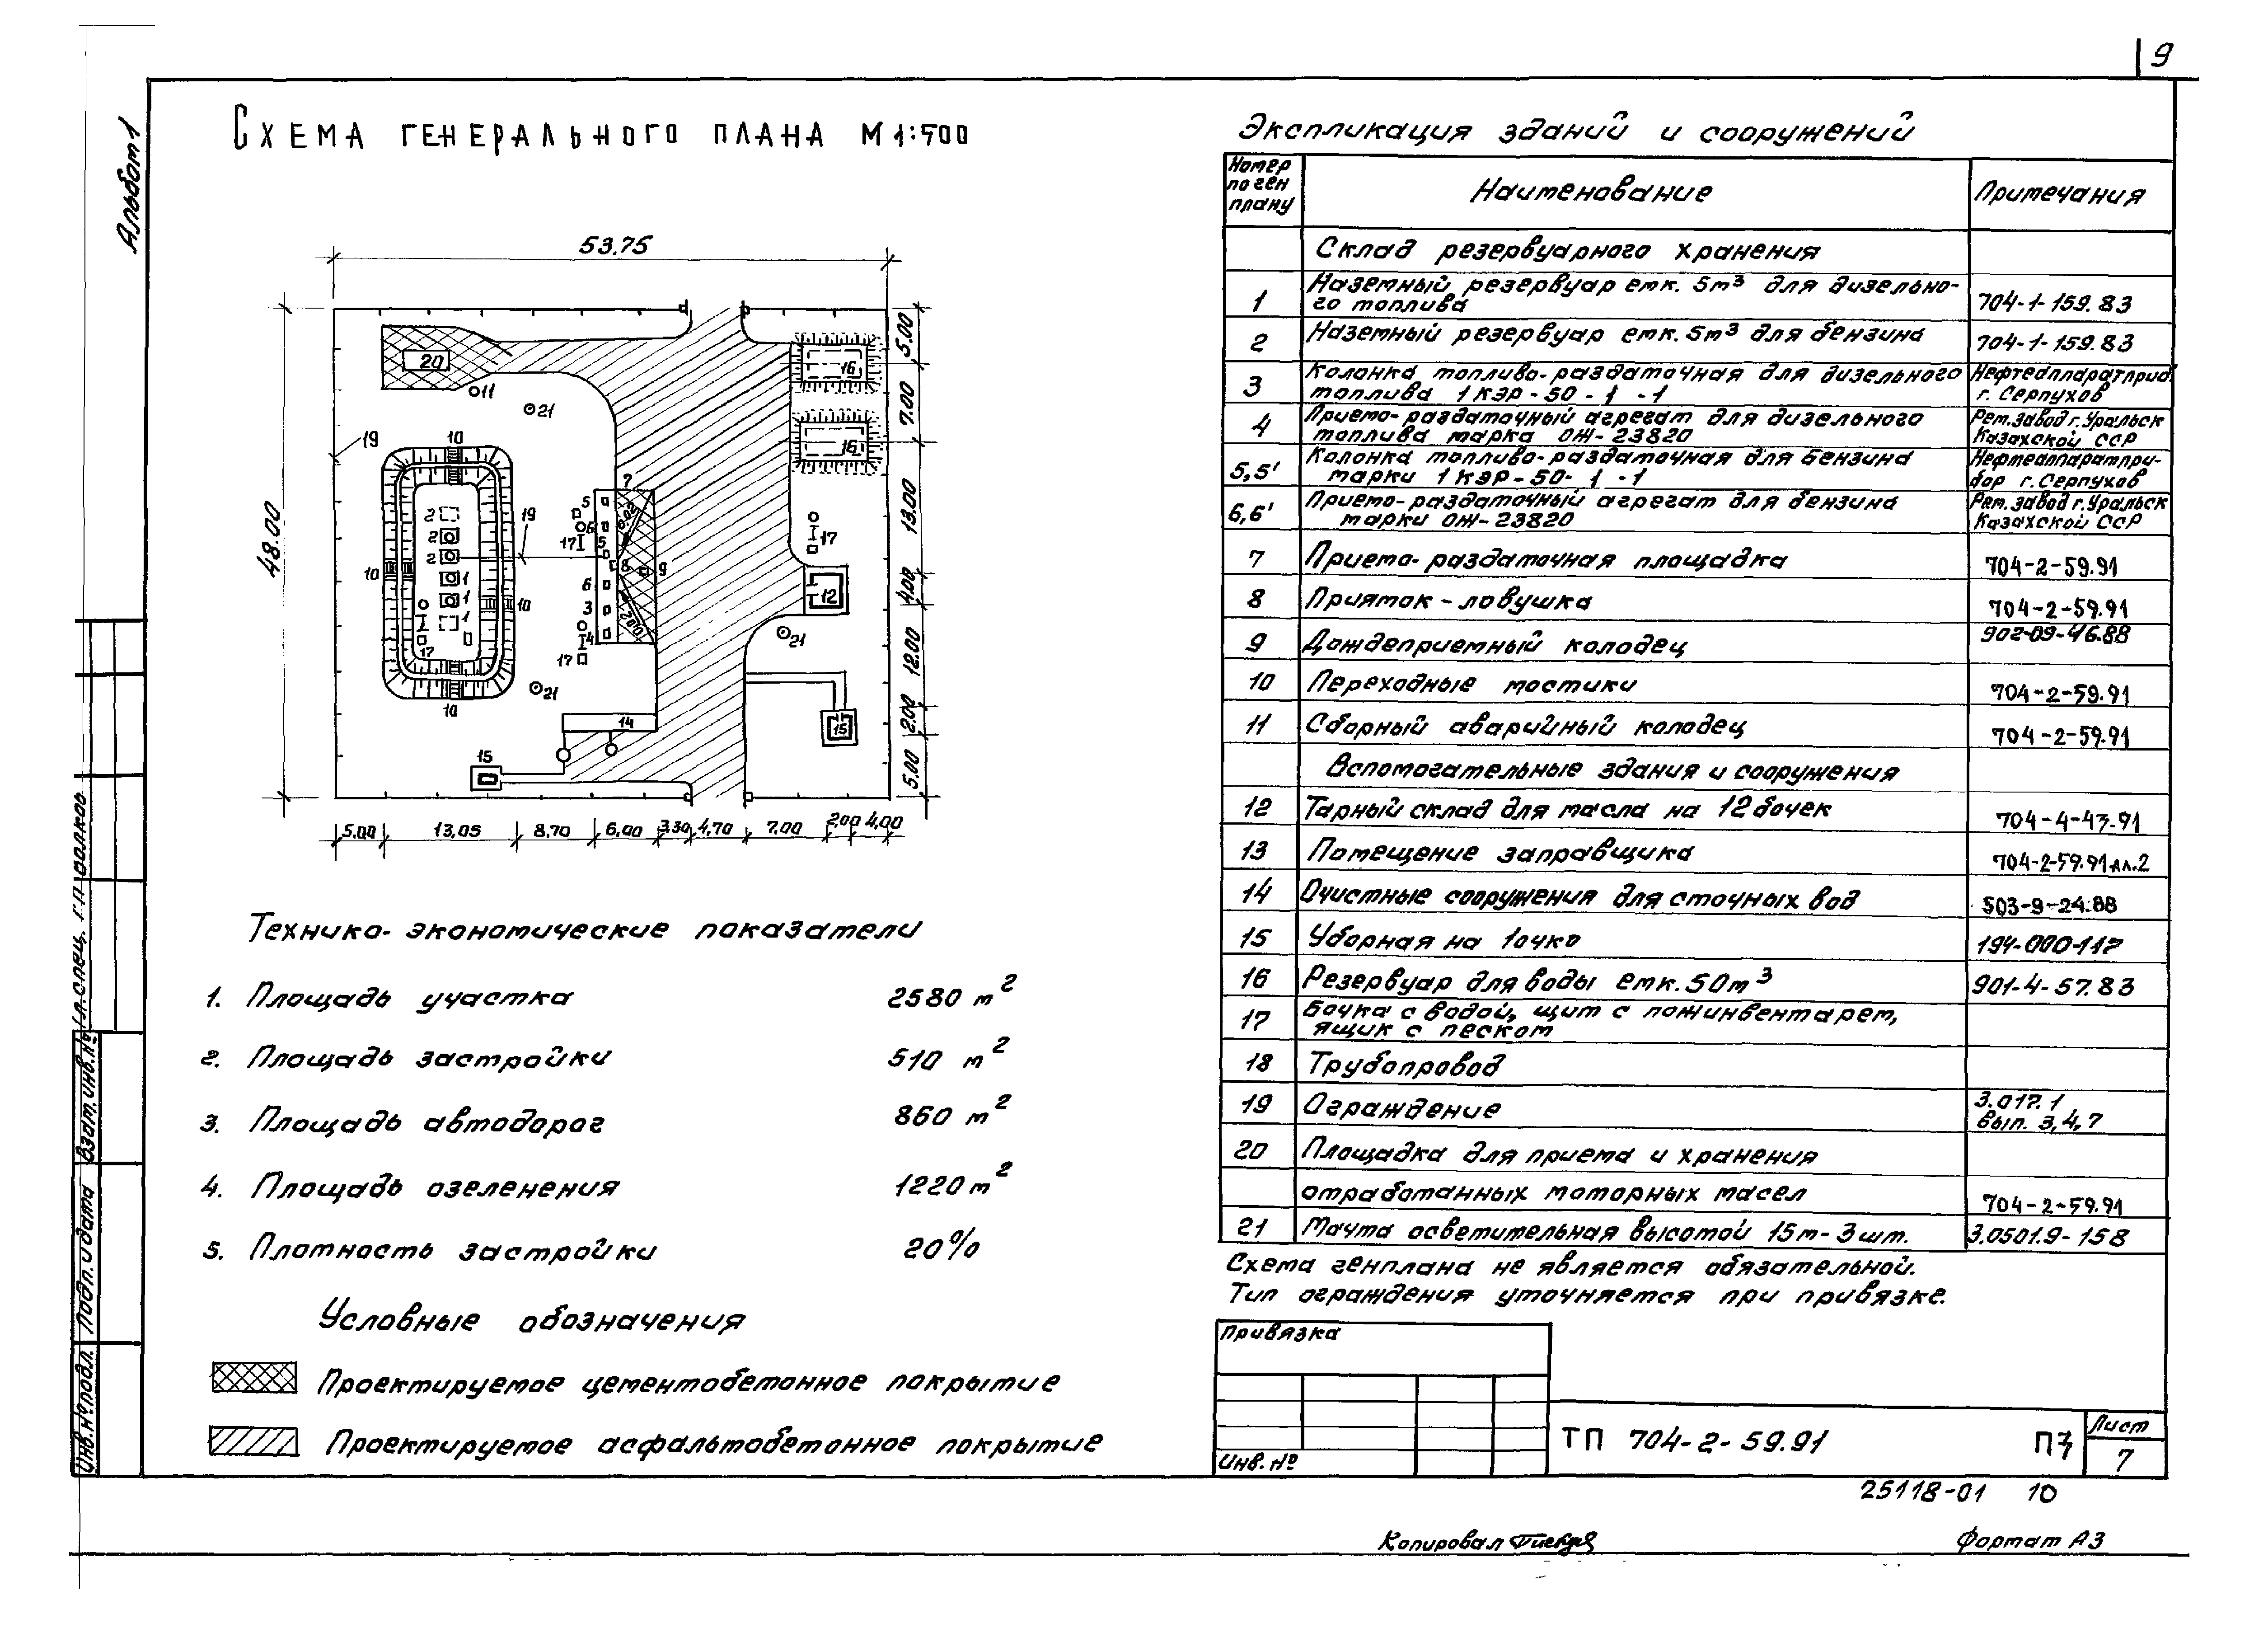 9
Альбом 1
Схема генерального плана М 1:500
53.75
48.00
5.00
7.00
13.00
4.00
12.00
2.00
5.00
5.00 13.05 8.70 6.00 3.30 4.70 7.00 2.00 4.00
20
11
21
16
16
19
10
7
5
2
19
6
17
5
2
17
2
10
8
9
1
6
12
1
10
3
2.00
1
4
21
17
17
10
21
14
15
15
Технико-экономические показатели
1. Площадь участка 2580 м²
2. Площадь застройки 510 м²
3. Площадь автодорог 860 м²
4. Площадь озеленения 1220 м²
5. Плотность застройки 20%
Условные обозначения
Проектируемое цементобетонное покрытие
Проектируемое асфальтобетонное покрытие
Экспликация зданий и сооружений
Номер по ген плану Наименование Примечания
Склад резервуарного хранения
1 Наземный резервуар емк. 5м³ для дизельно-
го топлива 704-1-159.83
2 Наземный резервуар емк. 5м³ для бензина 704-1-159.83
3 Колонка топливо-раздаточная для дизельного Нефтеаппаратприб.
топлива 1КЭР-50-1-1 г. Серпухов
4 Приемо-раздаточный агрегат для дизельного Рем. завод г. Уральск
топлива марка ОЖ-23820 Казахской ССР
5,5' Колонка топливо-раздаточная для бензина Нефтеаппаратпри-
марки 1КЭР-50-1-1 бор г. Серпухов
6,6' Приемо-раздаточный агрегат для бензина Рем. завод г. Уральск
марки ОЖ-23820 Казахской ССР
7 Приемо-раздаточная площадка 704-2-59.91
8 Приямок-ловушка 704-2-59.91
9 Дождеприемный колодец 902-09-46.88
10 Переходные мостики 704-2-59.91
11 Сборный аварийный колодец 704-2-59.91
Вспомогательные здания и сооружения
12 Тарный склад для масла на 12 бочек 704-4-43.91
13 Помещение заправщика 704-2-59.91 ал.2
14 Очистные сооружения для сточных вод 503-9-24.88
15 Уборная на 1 очко 194-000-117
16 Резервуар для воды емк. 50м³ 901-4-57.83
17 Бочка с водой, щит с пожинвентарем,
ящик с песком
18 Трубопровод
19 Ограждение 3.017.1
вып. 3,4,7
20 Площадка для приема и хранения
отработанных моторных масел 704-2-59.91
21 Мачта осветительная высотой 15м-3шт. 3.0501.9-158
Схема генплана не является обязательной.
Тип ограждения уточняется при привязке.
Привязка
Инв. №
ТП 704-2-59.91 ПЗ
Лист
7
25118-01 10
Копировал
Формат А3
Гл. спец.
Взам. инв. №
Подп. и дата
Инв. № подл.